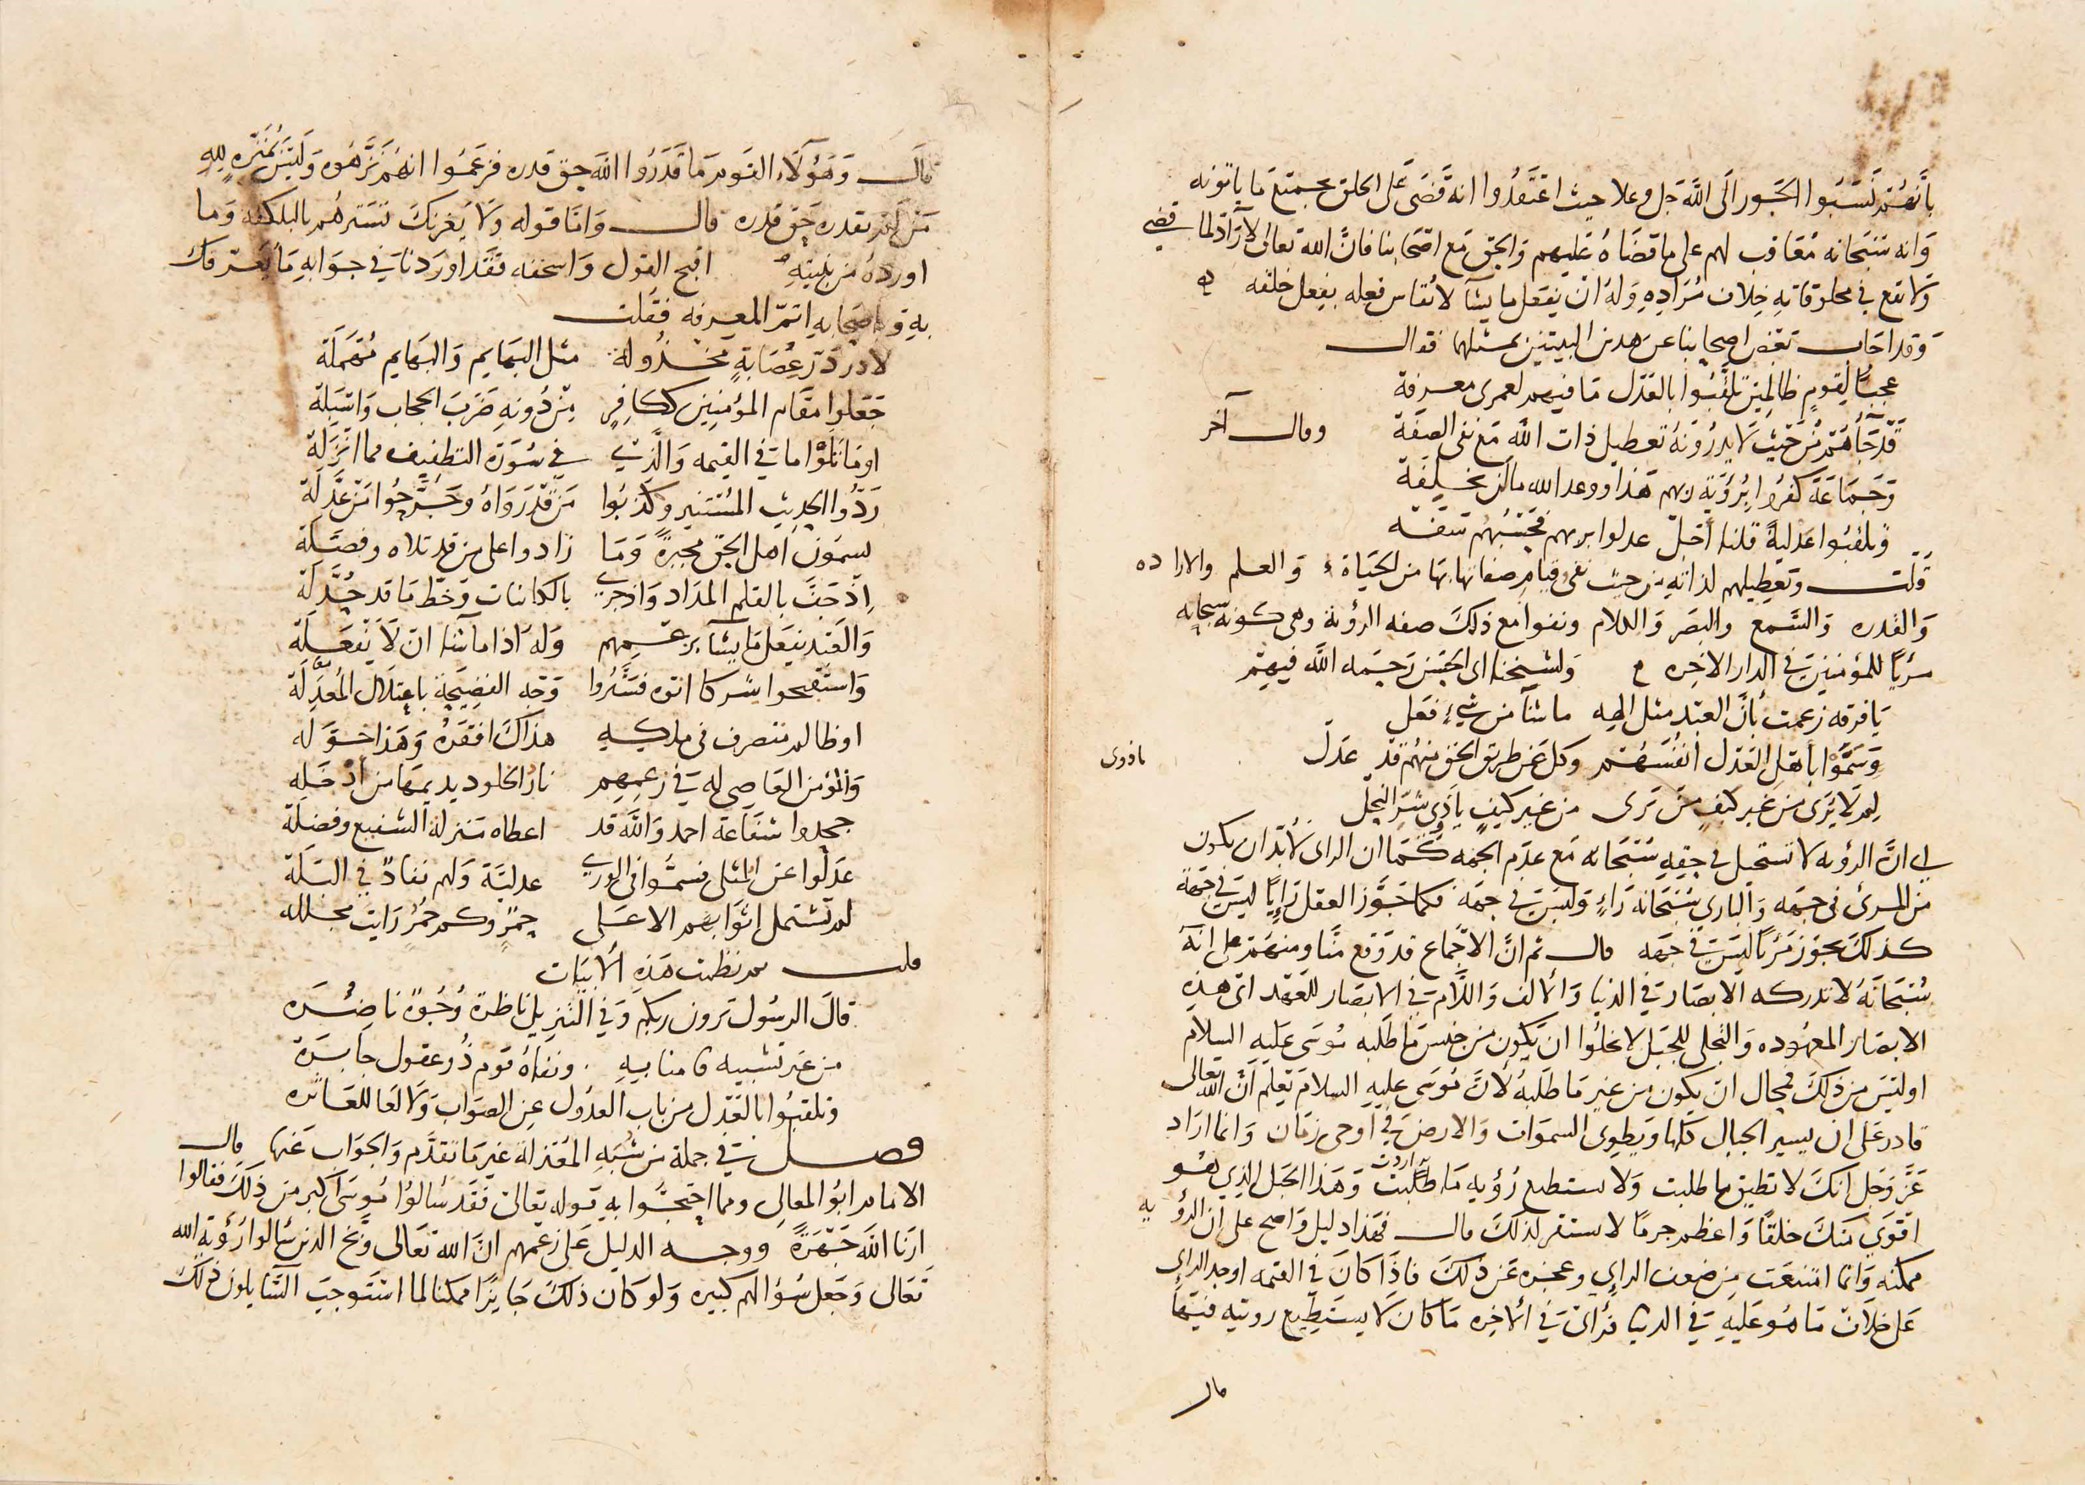 بأنهم نسبوا الجور الى الله جل وعلا حيث اعتقدوا انه قضى على الخلق بجميع ما ياتونه
وانه سبحانه معاقب لهم على ما قضاه عليهم والحق مع اصحابنا فان الله تعالى لا راد لما قضى
ولا يقع في مخلوقاته خلاف مراده وله ان يفعل ما يشا لا يقاس فعله بفعل خلقه
وقد اجاب بعض اصحابنا عن هذين البيتين بمثلهما فقال
عجبا لقوم ظالمين تلقبوا بالعدل ما فيهم لعمري معرفة
قد جاهم من حيث لا يدرونه تعطيل ذات الله مع نفي الصفة وقال آخر
وجماعة كفروا برؤية ربهم هذا ووعد الله ما لن يخلفه
وتلقبوا عدلية قلنا اجل عدلوا بربهم فحسبهم سفه
قلت وتعطيلهم لذاته من حيث نفي قيام صفاتها بها من الحياة والعلم والاراده
والقدره والسمع والبصر والكلام ونفوا مع ذلك صفه الرؤية وهي كونه سبحانه
مرئيا للمؤمنين في الدار الاخره ولشيخنا ابي الحسن رحمه الله فيهم
يا فرقه زعمت بأن العبد مثل الهه ما شآ من شيء فعل
وسموا باهل العدل انفسهم وكل عن طريق الحق منهم قد عدل
لم لا يرى من غير كيف من يرى من غير كيف يا ذوي شر النحل
ياذوى
اى ان الرؤيه لا تستحيل في حقه سبحانه مع عدم الجهه كما ان الرائى لا بد ان يكون
من المرئ في جهه والباري سبحانه راء وليس في جهه فكما جوز العقل رائيا ليس في جهة
كذلك يجوز مرئيا ليس في جهه قال ثم ان الاجماع قد وقع منا ومنهم على انه
سبحانه لا تدركه الابصار في الدنيا والالف واللام في الابصار للعهد اى هذه
الابصار المعهوده والتجلي للجبل لا يخلوا ان يكون من جنس ما طلبه موسى عليه السلام
او ليس من ذلك فمحال ان يكون من غير ما طلبه لان موسى عليه السلام يعلم ان الله تعالى
قادر على ان يسير الجبال كلها ويطوى السموات والارض في اوحى زمان وانما اراد
عز وجل انك لا تطيق ما طلبت ولا تستطيع رؤية ما طلبت وهذا الجبل الذي هو
اقوى منك خلقا واعظم جرما لا يستقر لذلك قال فهذا دليل واضح على ان الرؤيه
ممكنه وانما امتنعت من ضعف الرائي وعجزه عن ذلك فاذا كان في القيمه اوجد الرائي
على خلاف ما هو عليه في الدنيا فرأى في الاخره ما كان لا يستطيع رويته فيها
قال
قال وهؤلاء القوم ما قدروا الله حق قدره فزعموا انهم نزهوه وليس بمنزه لله
من لم يقدره حق قدره قال واما قوله ولا يغرنك تسترهم بالبلكفه وما
اورده من بليته اقبح القول واسخفه فقد اوردنا في جوابه ما يعرفك
به وباصحابه اتم المعرفه فقلت
لا در در عصابة مخذولة مثل البهايم والبهايم مهملة
جعلوا مقام المؤمنين ككافر من دونه ضرب الحجاب واسبلة
اوما تلوا ما في القيمه والذي في سورة التطفيف مما انزلة
ردوا الحديث المستنير وكذبوا من قد رواه وجرحوا من عدلة
يسمون اهل الحق مجبرة وما زادوا على من قد تلاه وفصلة
اذ جف بالقلم المداد واذ جرى بالكائنات وخط ما قد جدلة
والعبد يفعل ما يشآ بزعمهم وله اذا ما شا ان لا يفعله
واستقبحوا شركا اتوه فستروا وجه الفضيحة باعتلال المعدلة
او ظالم متصرف في ملكه هذاك افقره وهذا خوله
والمؤمن العاصي له في زعمهم نار الخلود يديمها من أدخله
جحدوا شفاعة احمد والله قد اعطاه منزلة الشفيع وفضلة
عدلوا عن المثلى فسموا في الورى عدلية ولهم نفاذ في السلة
لم تشتمل اثوابهم الا على حمر وكم حمر رايت مجلله
قلت نظمت هذه الابيات
قال الرسول ترون ربكم وفي التنزيل ناظرة وجوه ناضرة
من غير تشبيه فامنا به ونفاه قوم ذو عقول حاسرة
وتلقبوا بالعدل من باب العدول عن الصواب ولا لعا للعاثره
فصل في جملة من شبه المعتزلة غير ما تقدم والجواب عنها قال
الامام ابو المعالي ومما احتجوا به قوله تعالى فقد سالوا موسى اكبر من ذلك فقالوا
ارنا الله جهرة ووجه الدليل على زعمهم ان الله تعالى وبخ الذين سالوا رؤية الله
تعالى وجعل سؤالهم كبيره ولو كان ذلك جايزا ممكنا لما استوجب السايلون ذلك